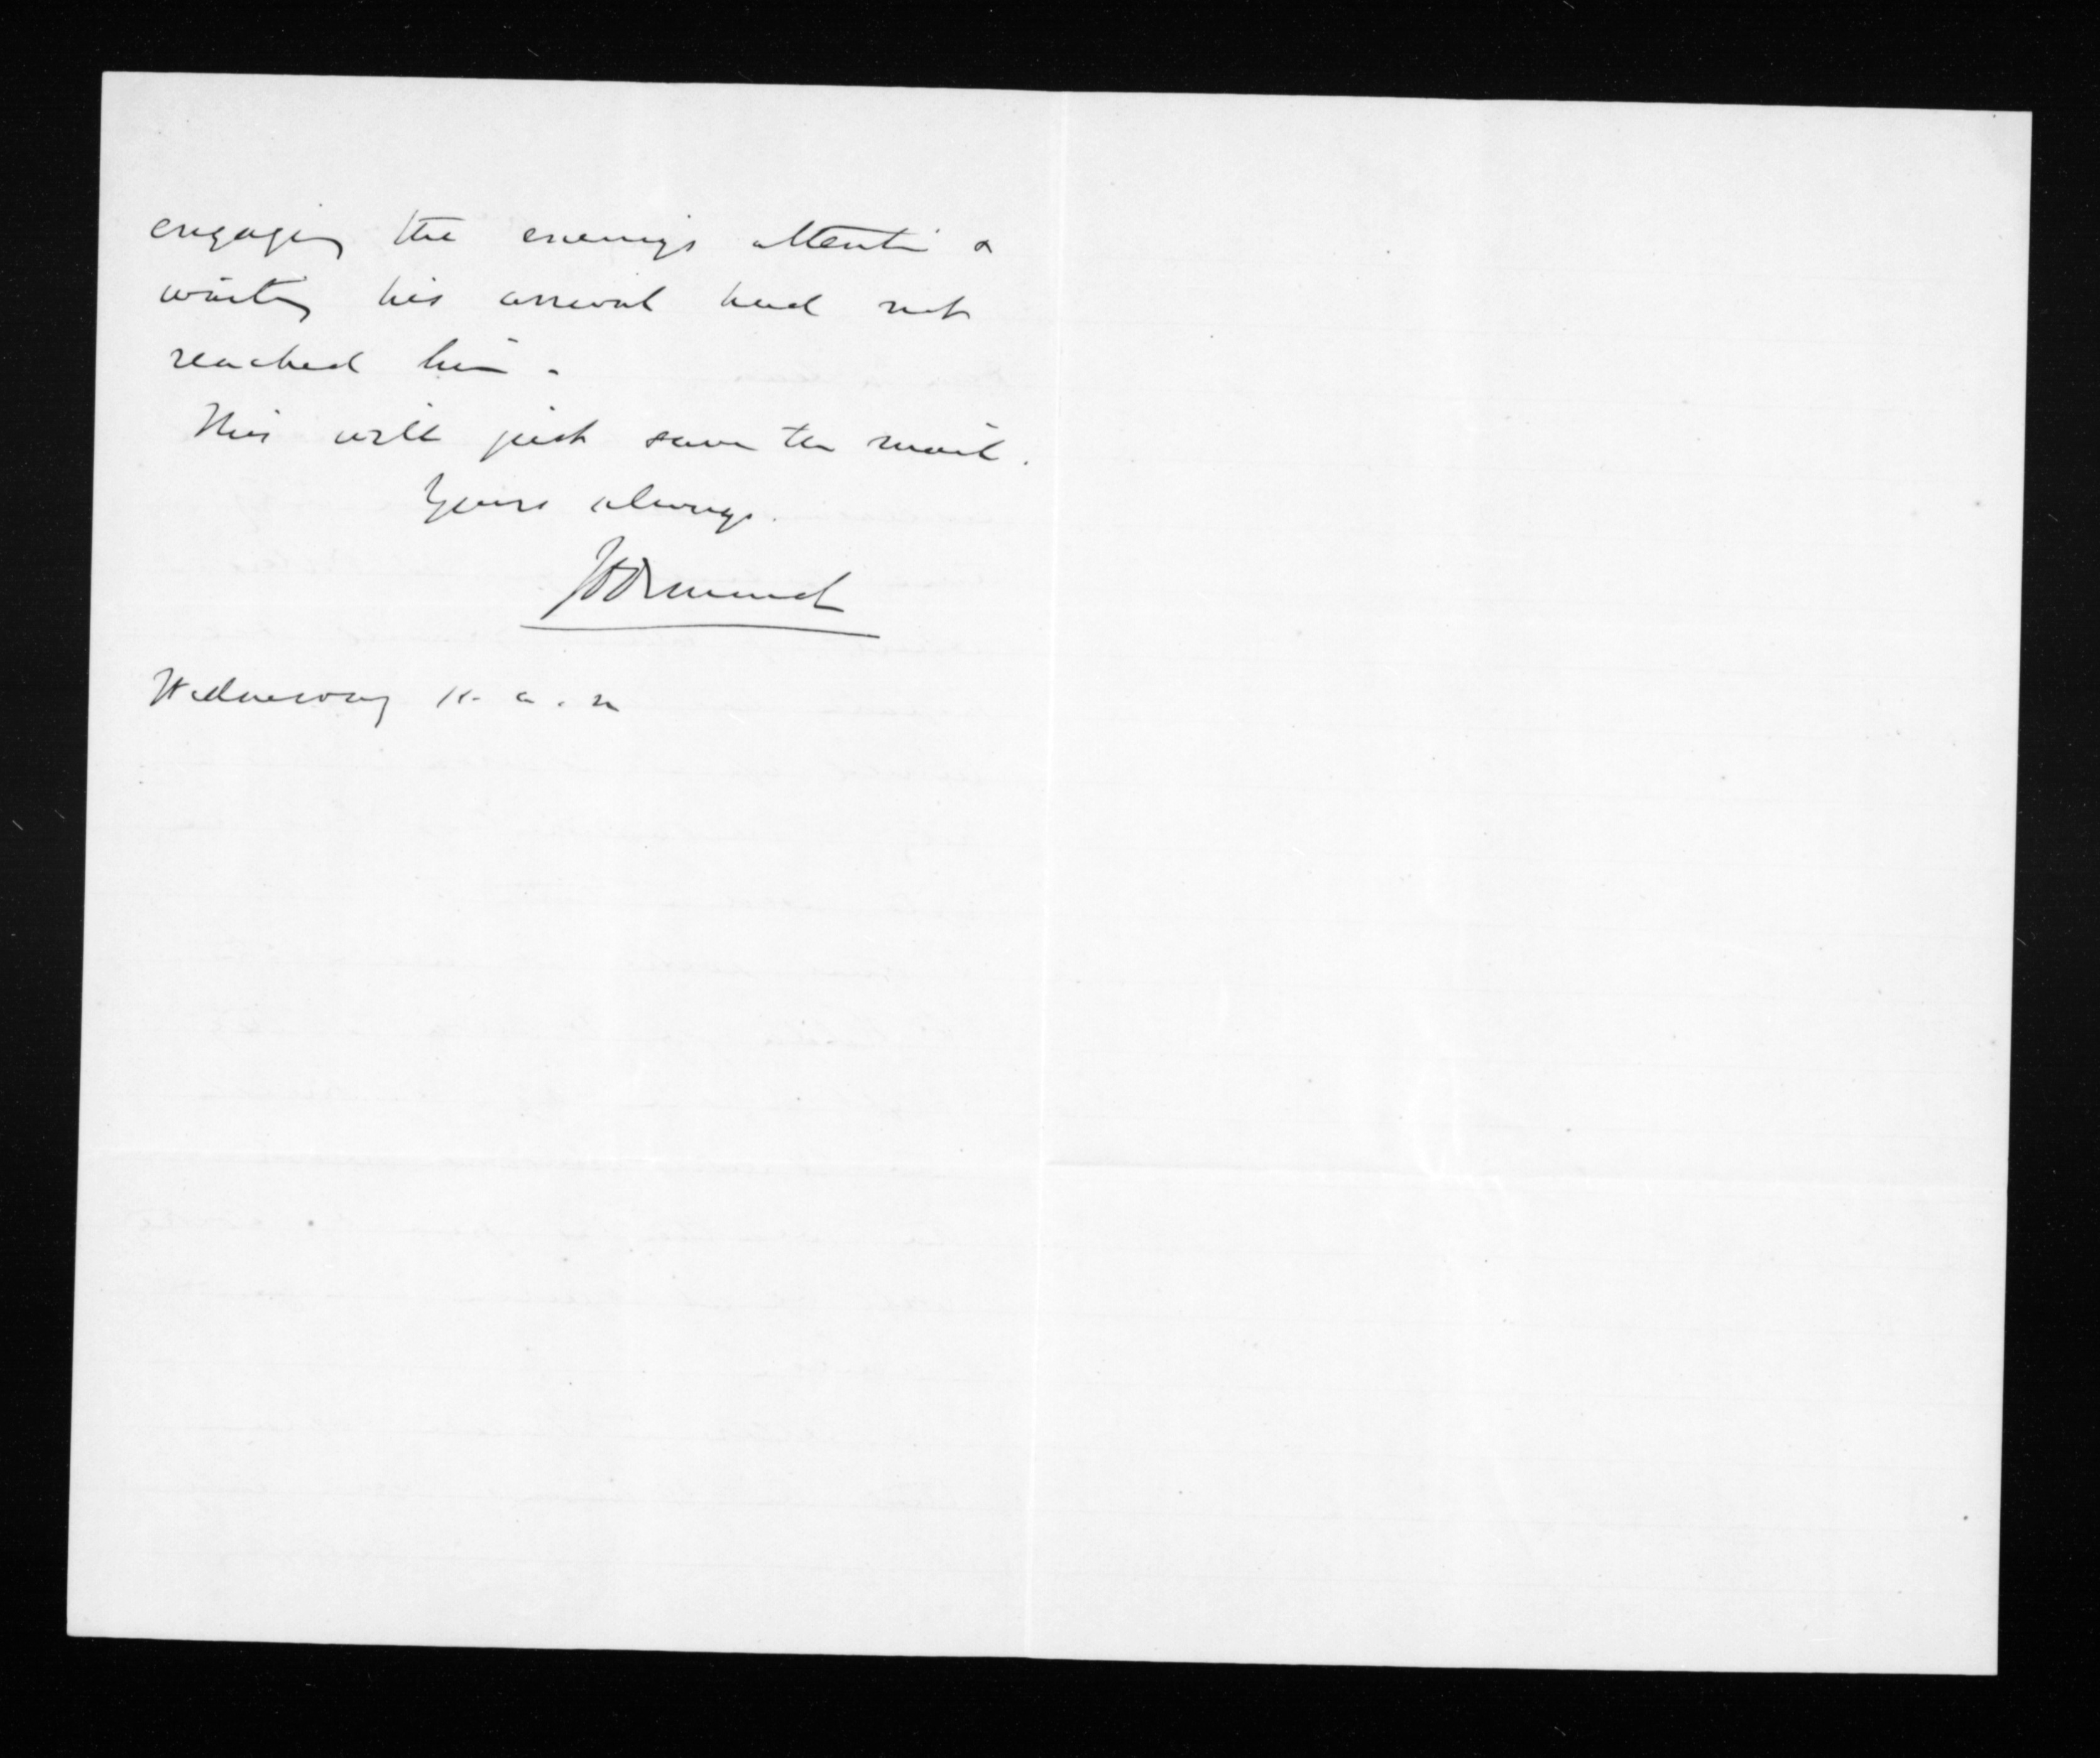 engaging the enemys attention &
waiting his arrival had not
reached him.
This will just save the mail.
Yours always.
Wednesday 11. a. m